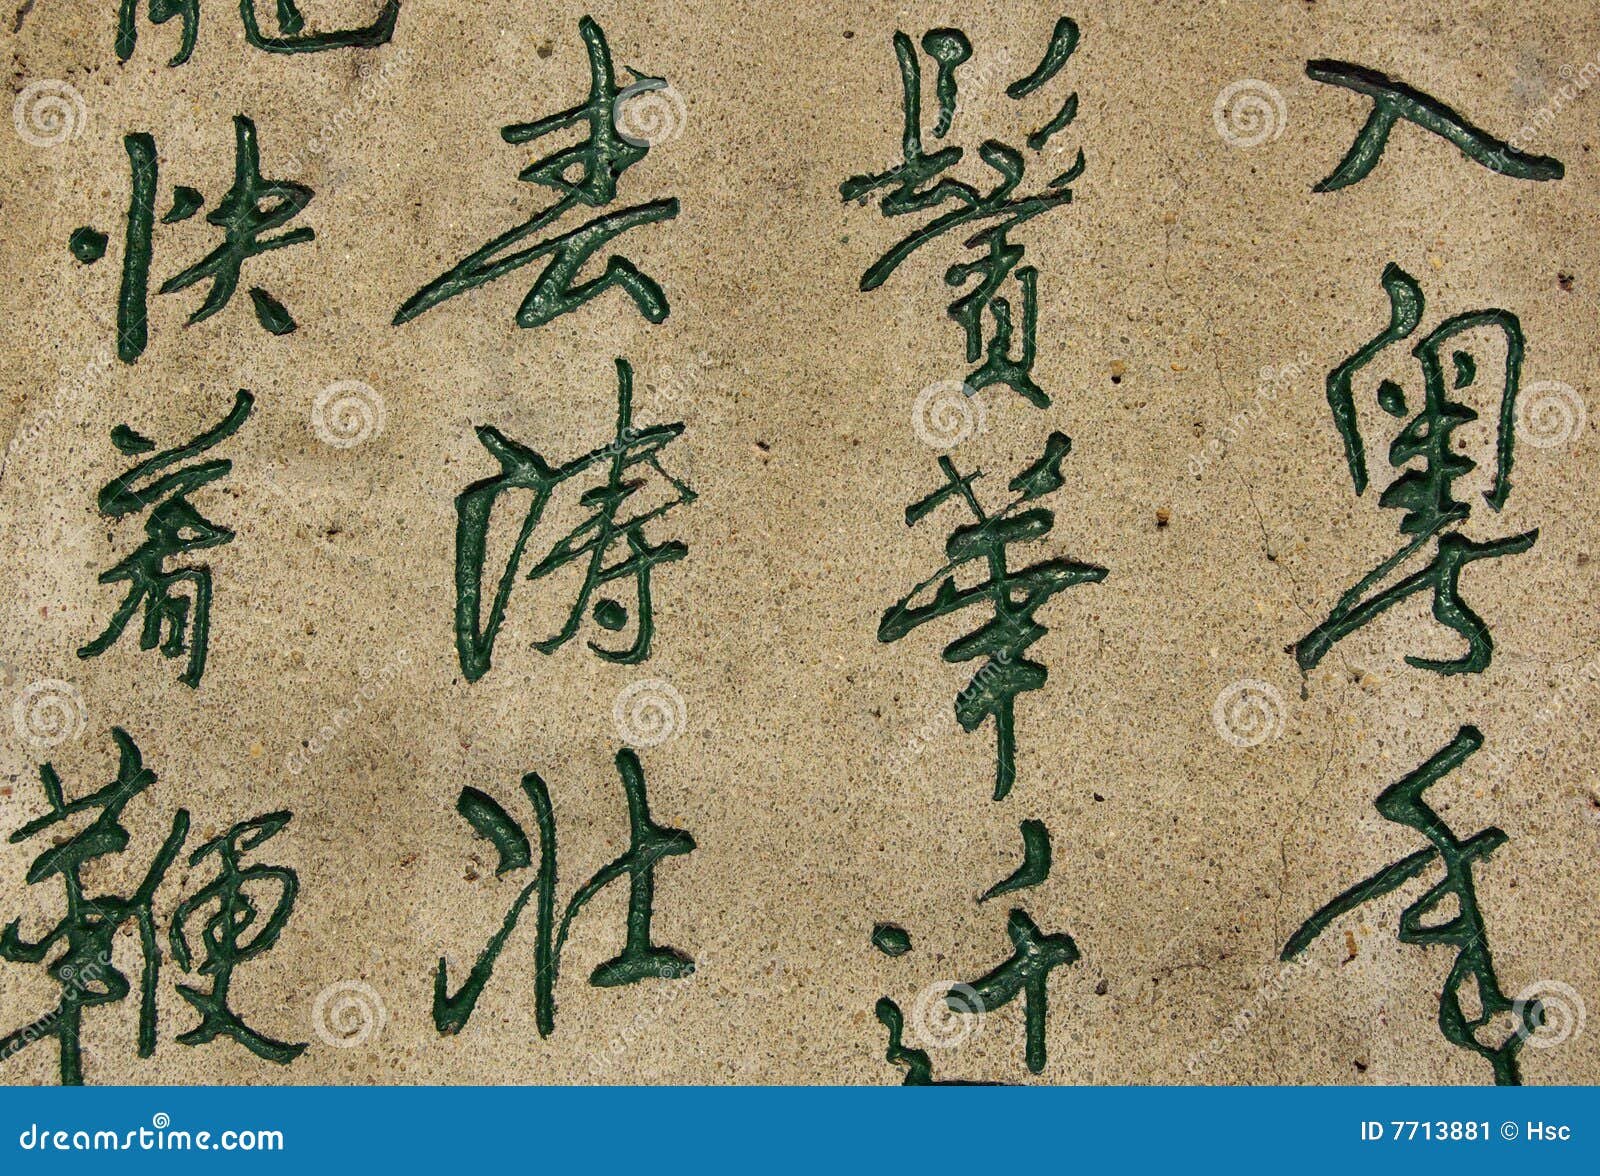 入粤
鬢華近
濤壯
快着鞭
dreamstime.com
ID 7713881 © Hsc